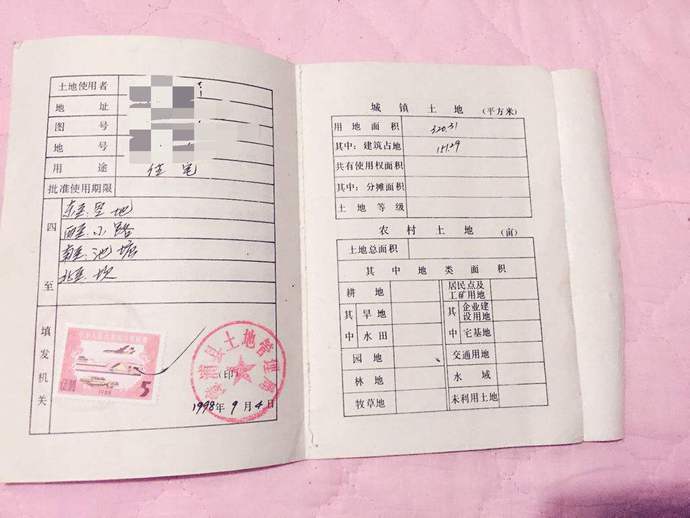 土地使用者
地址
图号
地号
用途 住宅
批准使用期限
四至
东至:空地
西至:小路
南至:池塘
北至:坎
填发机关
5
1988
县土地管理局
(印)
1998年9月4日
城镇土地 (平方米)
用地面积 320.31
其中:建筑占地 151.29
共有使用权面积
其中:分摊面积
土地等级
农村土地 (亩)
土地总面积
其中地类面积
耕地 居民点及工矿用地
其中 旱地 其中 企业建设用地
水田 宅基地
园地 交通用地
林地 水域
牧草地 未利用土地